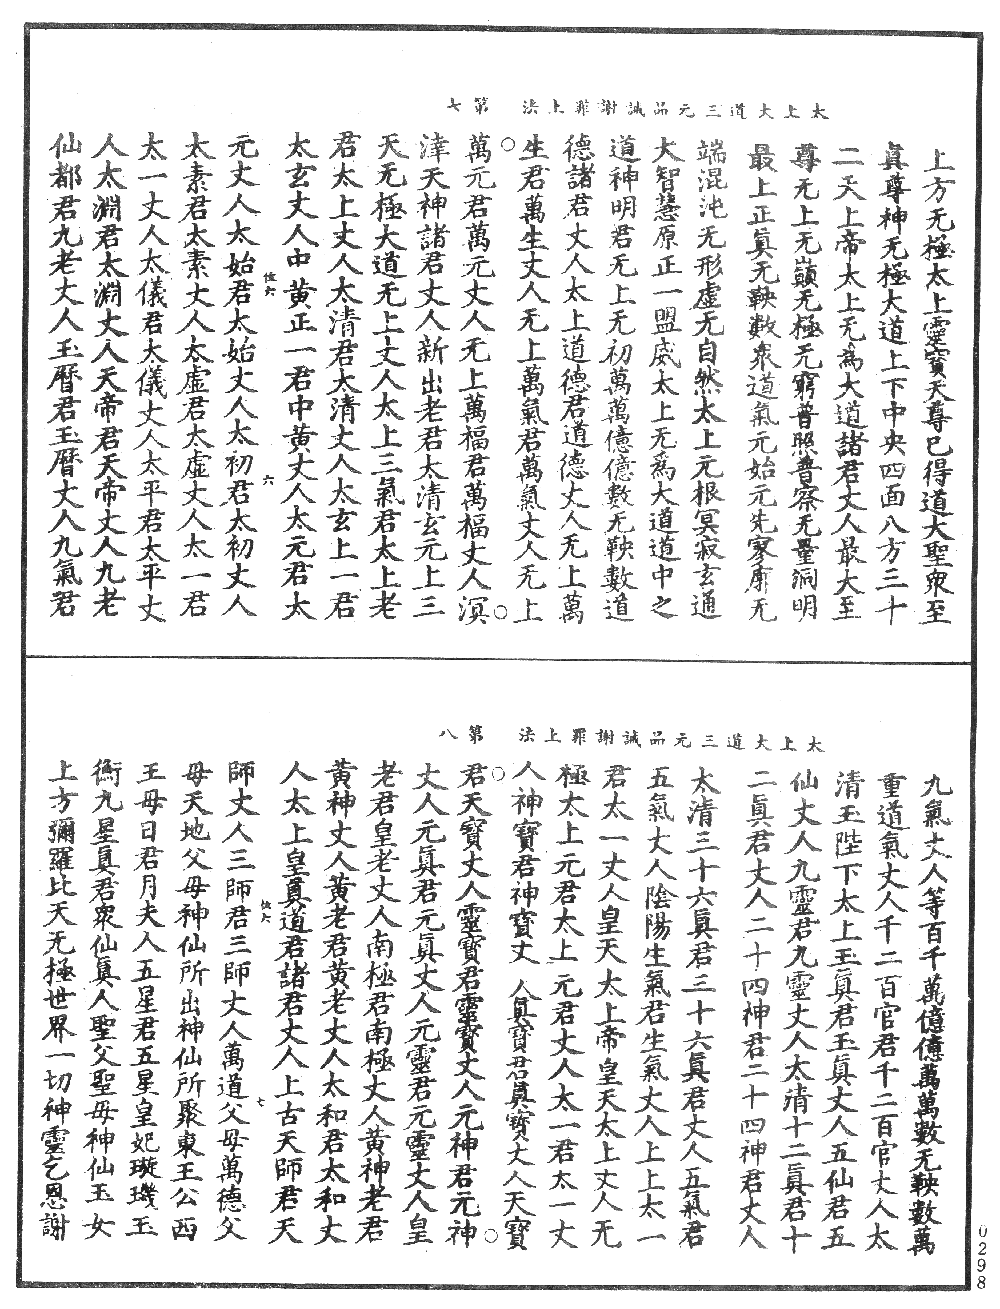 太上大道三元品誡謝罪上法　第七
上方无極太上靈寶天尊已得道大聖衆至
眞尊神无極大道上下中央四面八方三十
二天上帝太上无爲大道諸君丈人最大至
尊无上无巓无極无窮普照普察无量洞明
最上正眞无鞅數衆道氣元始元先寥廓无
端混沌无形虛无自然太上元根冥寂玄通
大智慧原正一盟威太上无爲大道道中之
道神明君无上无初萬萬億億數无鞅數道
德諸君丈人太上道德君道德丈人无上萬
生君萬生丈人无上萬氣君萬氣丈人无上
萬元君萬元丈人无上萬福君萬福丈人溟
涬天神諸君丈人新出老君太清玄元上三
天无極大道无上丈人太上三氣君太上老
君太上丈人太清君太清丈人太玄上一君
太玄丈人中黄正一君中黄丈人太元君太
元丈人太始君太始丈人太初君太初丈人
太素君太素丈人太虛君太虛丈人太一君
太一丈人太儀君太儀丈人太平君太平丈
人太淵君太淵丈人天帝君天帝丈人九老
仙都君九老丈人玉曆君玉曆丈人九氣君
太上大道三元品誡謝罪上法　第八
九氣丈人等百千萬億億萬萬數无鞅數萬
重道氣丈人千二百官君千二百官丈人太
清玉陛下太上玉眞君玉眞丈人五仙君五
仙丈人九靈君九靈丈人太清十二眞君十
二眞君丈人二十四神君二十四神君丈人
太清三十六眞君三十六眞君丈人五氣君
五氣丈人陰陽生氣君生氣丈人上上太一
君太一丈人皇天太上帝皇天太上丈人无
極太上元君太上元君丈人太一君太一丈
人神寶君神寶丈人眞寶君眞寶丈人天寶
君天寶丈人靈寶君靈寶丈人元神君元神
丈人元眞君元眞丈人元靈君元靈丈人皇
老君皇老丈人南極君南極丈人黄神老君
黄神丈人黄老君黄老丈人太和君太和丈
人太上皇眞道君諸君丈人上古天師君天
師丈人三師君三師丈人萬道父母萬德父
母天地父母神仙所出神仙所聚東王公西
王母日君月夫人五星君五星皇妃璇璣玉
衡九星眞君衆仙眞人聖父聖母神仙玉女
上方彌羅比天无極世界一切神靈乞恩謝
0298